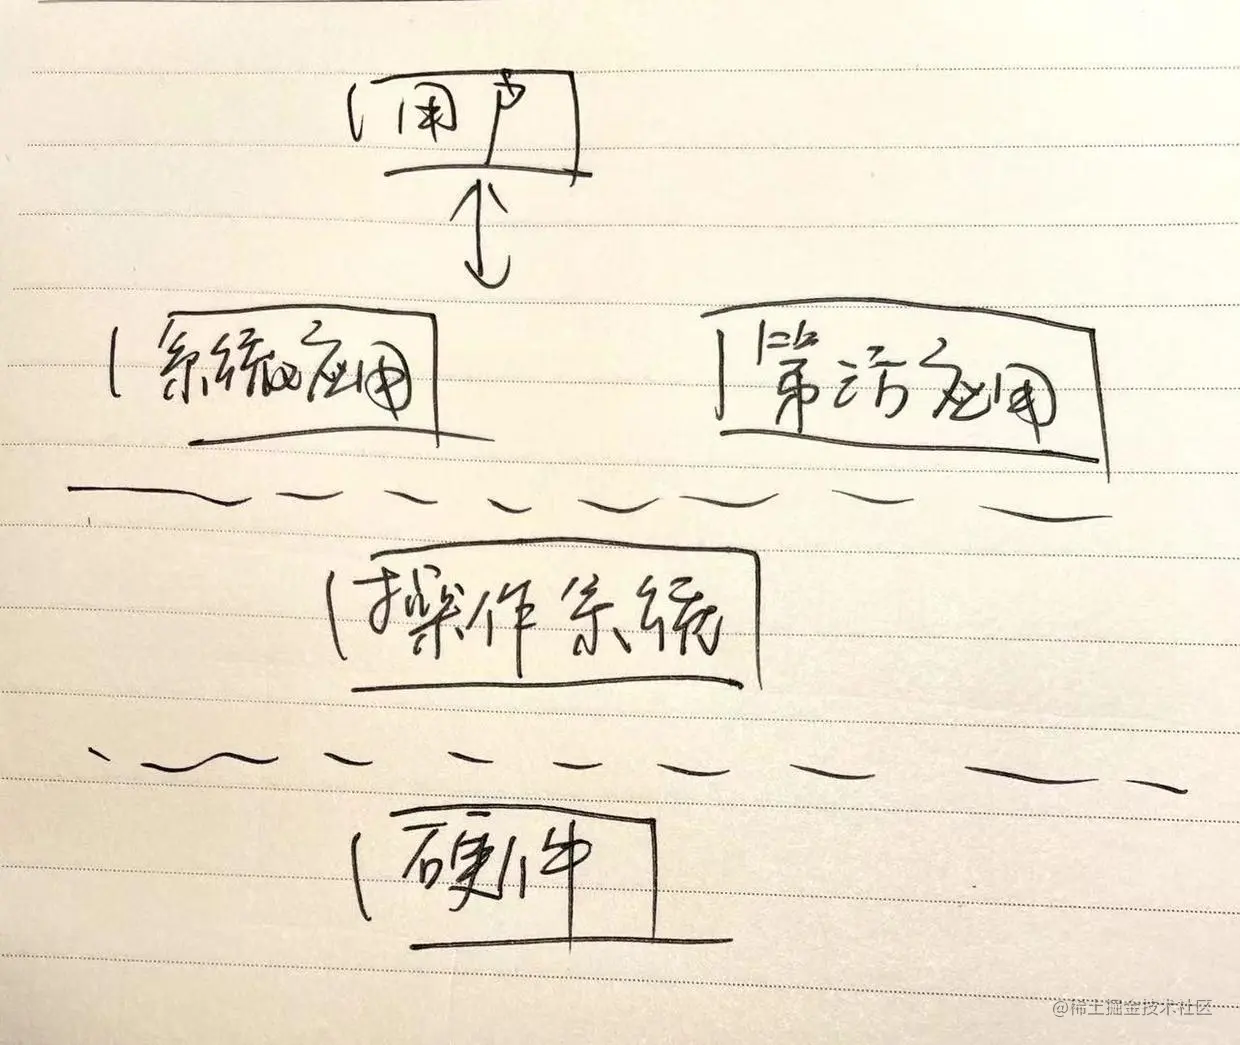 用户
系统应用
第三方应用
操作系统
硬件
@稀土掘金技术社区